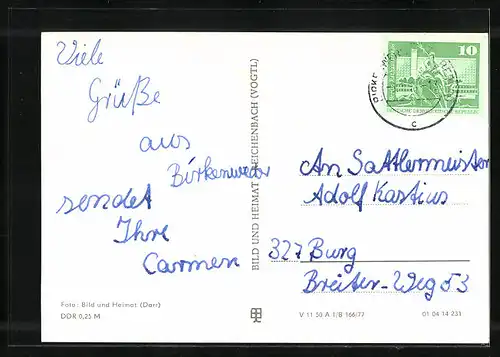 Viele
Grüße
aus
Birkenwerder
sendet
Ihre
Carmen
Foto: Bild und Heimat (Darr)
DDR 0,25 M
BILD UND HEIMAT REICHENBACH (VOGTL)
10
DEUTSCHE DEMOKRATISCHE REPUBLIK
C
An Sattlermeister
Adolf Kastius
327 Burg
Breiter-Weg 53
V 11 50 A 1/B 166/77
01 04 14 233